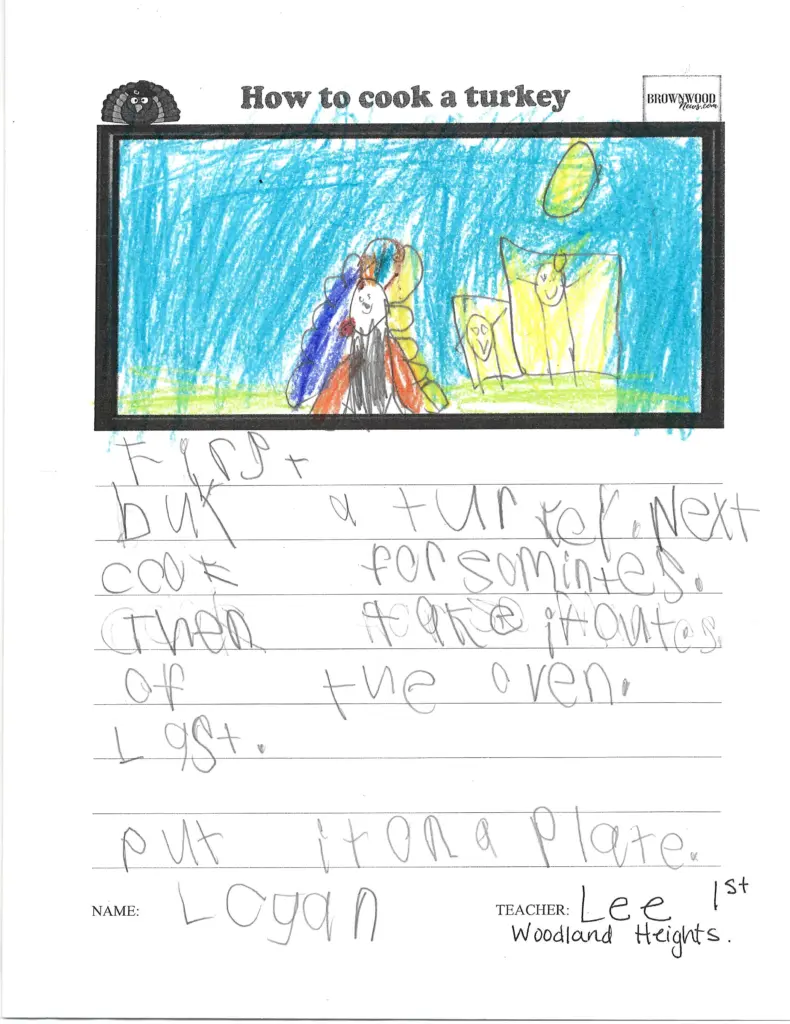 How to cook a turkey
BROWNWOOD
News.com
First
buk a turkey. Next
cook for 50 mintes.
Then take it out
of the oven.
Last.
put it on a plate.
NAME: Logan TEACHER: Lee 1st
Woodland Heights.